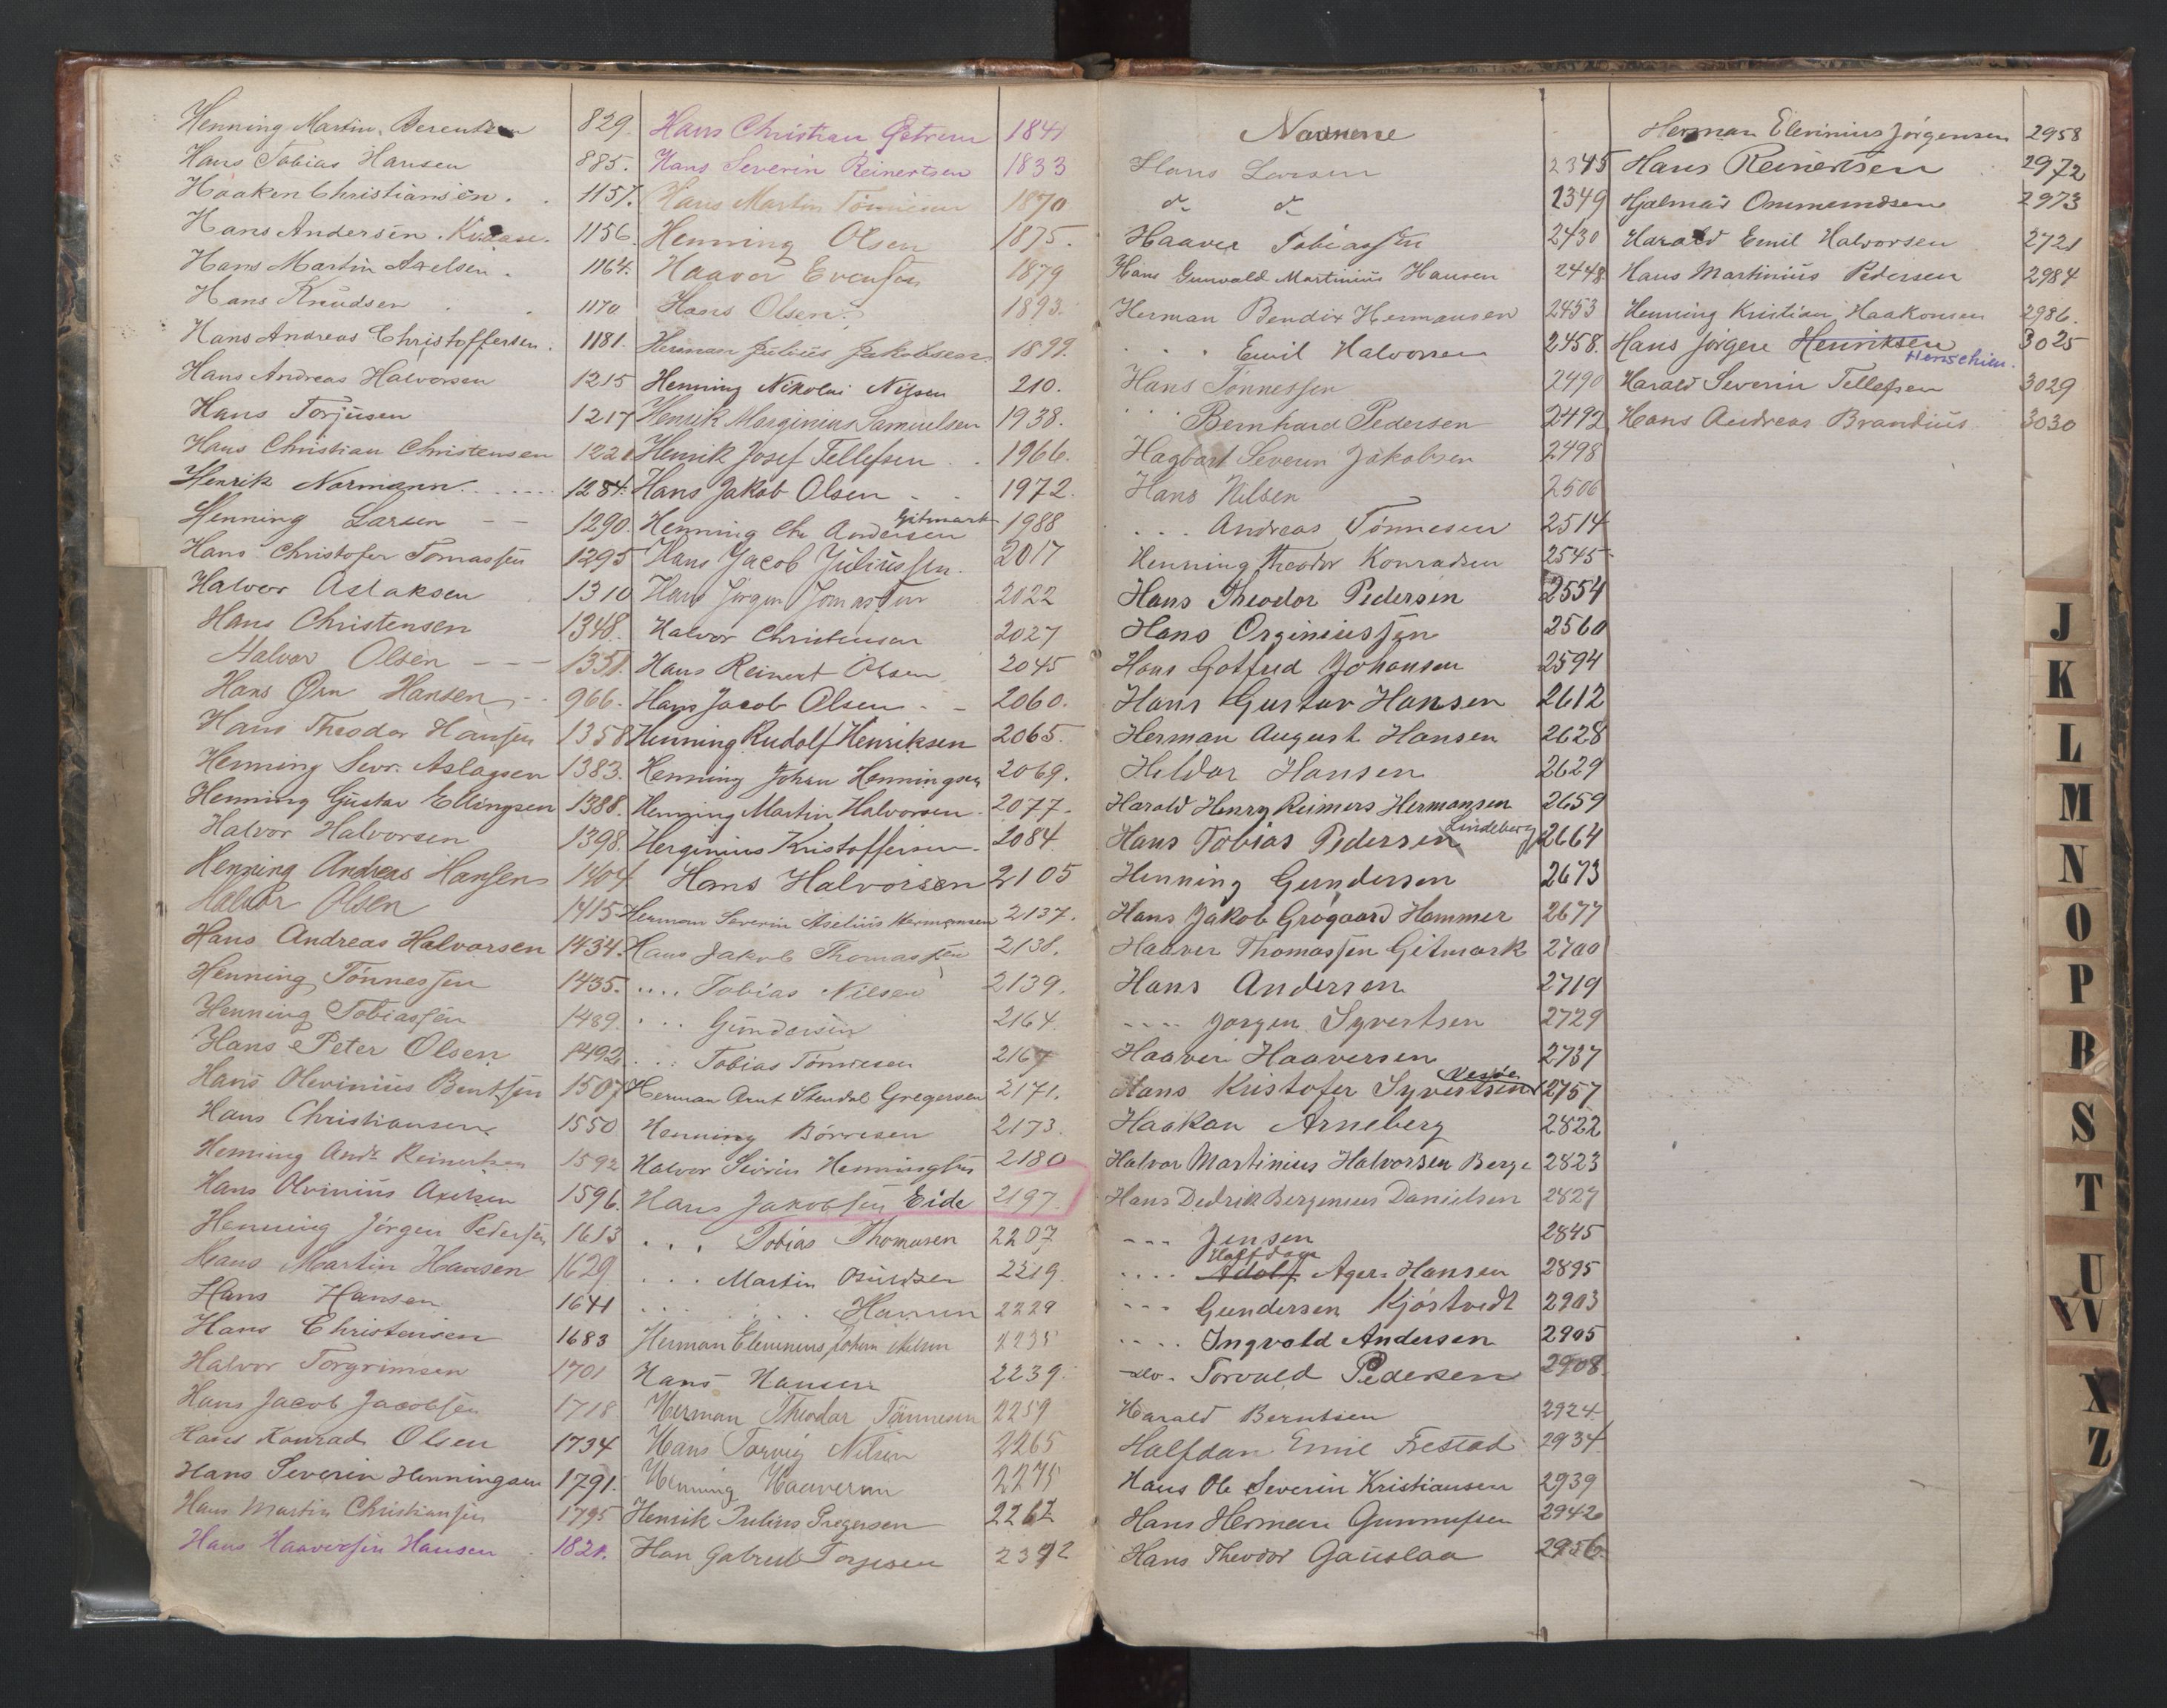 Henning Martin Berentsen 829.
Hans Tobias Hansen 885.
Haaken Christiansen. 1157.
Hans Andersen. 1156.
Hans Martin Axelsen. 1164.
Hans Knudsen 1170
Hans Andreas Christoffersen. 1181.
Hans Andreas Halvorsen 1215
Hans Torjusen 1217
Hans Christian Christensen 1221
Henrik Normann 1284.
Henning Larsen 1290.
Hans Christofer Tomassen 1295
Halvor Aslaksen 1310
Hans Christensen 1348.
Halvor Olsen 1351.
Hans Ørn Hansen 966.
Hans Theodor Hansen 1358
Henning Sevr. Aslagsen 1383.
Henning Gustav Ellingsen 1388.
Halvor Halvorsen 1398.
Henning Andreas Hansen 1404
Halvor Olsen 1415
Hans Andreas Halvorsen 1434.
Henning Tönnessen 1435.
Henning Tobiassen 1489.
Hans Peter Olsen 1492
Hans Olevinius Bentsen 1507
Hans Christiansen 1550
Henning Andr. Reinertsen 1592
Hans Olvinius Axelsen 1596.
Henning Jörgen Pedersen 1613
Hans Martin Hansen 1629
Hans Hansen 1641
Hans Christensen 1683
Halvor Torgrimsen 1701
Hans Jacob Jacobsen 1718
Hans Konrad Olsen 1734
Hans Severin Henningsen 1791.
Hans Martin Christiansen 1795
Hans Haaversen Hansen 1821.
Hans Christian 1841
Hans Severin Reinertsen 1833
Hans Martin Tönnesen 1870
Henning Olsen 1875.
Haaver Evensen 1879
Hans Olsen 1893.
Herman Julius Jakobsen 1899.
Henning Nikolai Nilsen 210.
Henrik Marginius Samuelsen 1938.
Henrik Josef Tellefsen 1966.
Hans Jakob Olsen 1972.
Henning Chr Andersen Gitmark 1988
Hans Jacob Juliussen. 2017
Hans Jörgen Tomassen 2022
Halvor Christensen 2027
Hans Reinert Olsen 2045
Hans Jacob Olsen 2060.
Henning Rudolf Henriksen 2065.
Henning Johan Henningsen 2069.
Henning Martin Halvorsen 2077.
Herginius Kristoffersen 2084
Hans Halvorsen 2105
Herman Severin Aselius Hermansen 2137.
Hans Jakob Thomassen 2138.
.... Tobias Nilsen 2139.
... Gundersen 2164
... Tobias Tönnesen 2167
Herman Arnt Stendal Gregersen 2171.
Henning Börresen 2173.
Halvor Sivrin Henningsen 2180
Hans Jakobsen Eide 2197.
... Tobias Thomasen 2207
.... Martin 2219.
Hansen 2229
Herman Elevinius Johan 2235
Hans Hansen 2239.
Herman Theodor Tönnesen 2259
Hans Torvig Nilsen 2265
Henning Haaversen 2275
Henrik Julius Gregersen 2262
Han Gabriel Torjesen
Navnene
Hans Larsen 2345
do do 2349
Haaver Tobiassen 2430
Hans Gunvald Martinius Hansen 2448
Herman Bendix Hermansen 2453
... Emil Halvorsen 2458.
Hans Tönnessen 2490
.. Bernhard Pedersen 2492
Hagbart Severin Jakobsen 2498
Hans Nilsen 2506
.... Andreas Tönnesen 2514
Henning Theodor Konradsen 2545
Hans Theodor Pedersen 2554
Hans Orginiussen 2560
Hans Gotfred Johansen 2594
Hans Gustav Hansen 2612
Herman August Hansen 2628
Heldor Hansen 2629
Harald Henry Reimers Hermansen 2659
Hans Tobias Pedersen Lindeberg 2664
Henning Gundersen 2673
Hans Jakob Grögaard Hammer 2677
Haaver Thomassen Gitmark 2700
Hans Andersen 2719
---- Jörgen Syvertsen 2729
Haaver Haaversen 2737
Hans Kristofer Syvertsen Nesöe 2757
Haakon Arneberg 2822
Halvor Martinius Halvorsen Berge 2823
Hans Dedrik Bergenius Danielsen 2827
--- Jensen 2845
.... Adolf Halfdan Hansen 2895
--- Gundersen Kjöstvedt 2903
.... Ingvald Andersen 2905
do. Torvald Pedersen 2908.
Harald Berntsen 2924
Halfdan Emil Frestad 2934.
Hans Ole Severin Kristiansen 2939
Hans Herman Gunnufsen 2942
Hans Theodor Gauslaa 2956.
Herman Elevinius Jörgensen 2958
Hans Reinertsen 2972
Hjalmar Ommundsen 2973
Harald Emil Halvorsen 2721
Hans Martinius Pedersen 2984
Henning Kristian Haakonsen 2986.
Hans Jörgen Henriksen Henschien. 3025
Harald Severin Tellefsen 3029
Hans Andreas Brandius 3030
J
K
L
M
N
O
P
B
S
T
U
VW
X
Z